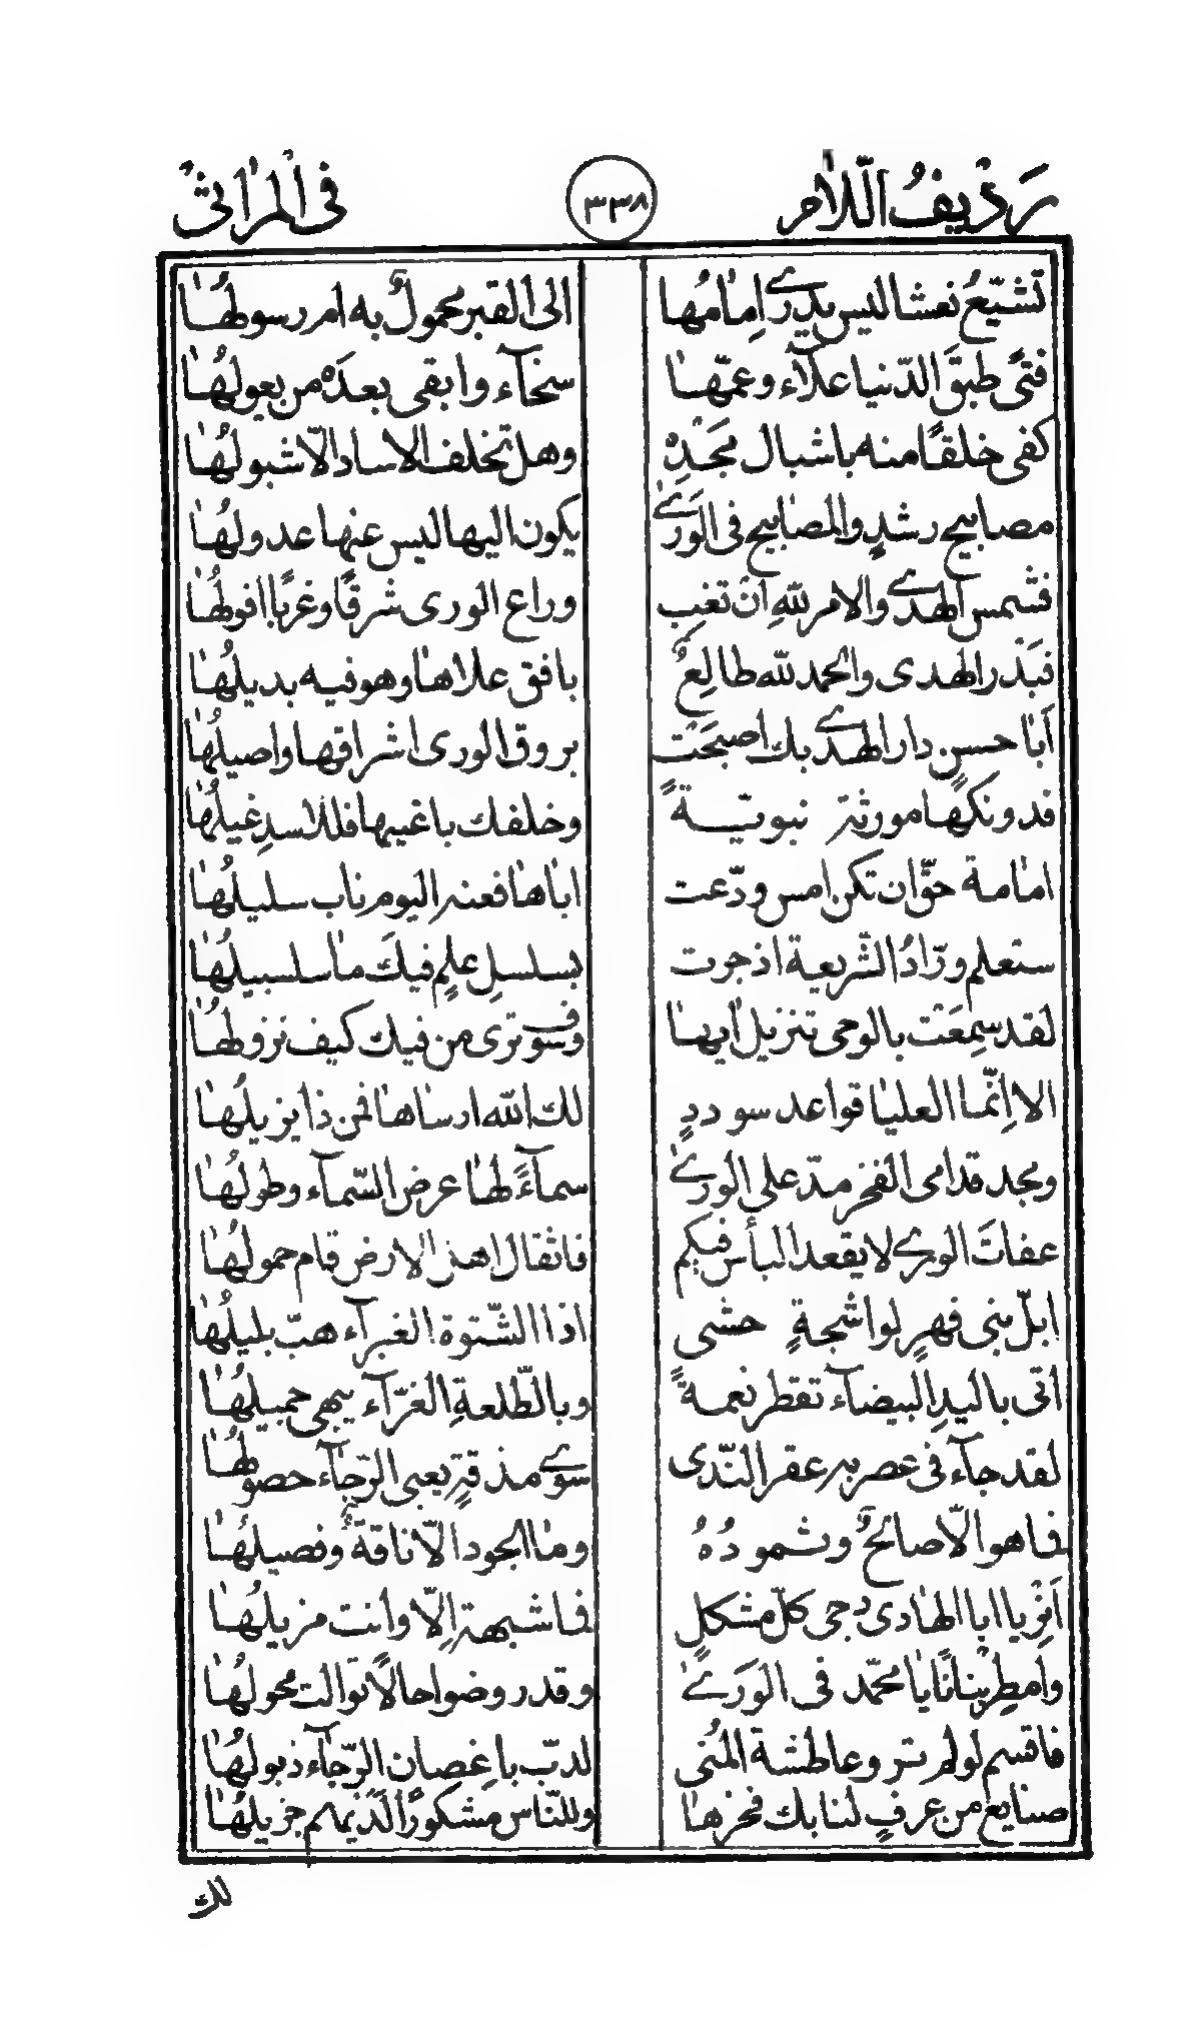 رَدْيفُ اللّام ٣٣٨ فى المراثى
تشيّعُ نعشا ليس يدرے اِمامُها الى القبر محمولٌ به ام رسولُها
فتىً طبقَ الدّنيا علآء وعمّها سخآء وابقى بعدَه من يعولُها
كفى خلقًا منه باشبال مَجْدِه وهل تخلف الاساد الّا شبولُها
مصابيح رشدٍ والمصابيح فى الورَے يكون اليها ليس عنها عدولُها
فشمس الهدے والامر للّهِ ان تغب وراع الورى شرقًا وغربًا افولُها
فبَدْر الهدى والحمد للّه طالِعٌ بافق علاها وهو فيه بديلُها
اَبا حسن دار الهدے بك اصبحَت بروق الورى اشراقها واصيلُها
فدونكها موروثة نبويّــةً وخلفك باغيها فللاسدِ غيلُها
امامة حقّ ان تكن امس ودّعت اباها فعنه اليوم ناب سليلُها
ستعلم ورّادُ الشّريعة اذ جرت بسلسلِ علمٍ فيكَ ما سلسبيلُها
لقد سمِعَت بالوحى تنزيل ايها وسوف ترى من فيك كيف نزولُها
الا اِنّما العليا قواعد سوددٍ لك اللّه ارساها فمن ذا يزيلُها
ومجد قدامى الفخر مدّ على الورے سمآءً لها عرض السّمآء وطولُها
عفاتَ الورے لا يقعد البأس فيكم فاثقال اهذى الارض قام حمولُها
ابلّ بنى فهرٍ لواشجةٍ حشى اذا الشّتوة الغبرآء هبّ بليلُها
اتى باليدِ البيضآء تقطر نعمةً وبالطّلعةِ الغرّآء يبهى جميلُها
لقد جآء فى عصر به عقر النّدى سوے مذقةٍ يعيى الرّجآء حصولُها
فما هو الّا صالحٌ وثمودُهُ وما الجود الّا ناقةٌ وفصيلُها
اَنِرْ يا ابا الهادى دجى كلّ مشكلٍ فما شبهة اِلّا وانت مزيلُها
وامطِر بنانًا يا محمّد فى الورَے وقد روضوا حالًا توالت محولُها
فاقسم لو لم ترو عاطشة المُنى لدبّ باغصان الرّجآء ذبولُها
صنايع من عرفٍ لنا بك فخرها وللنّاس مشكورًا لَدَيهم جزيلُها
لك